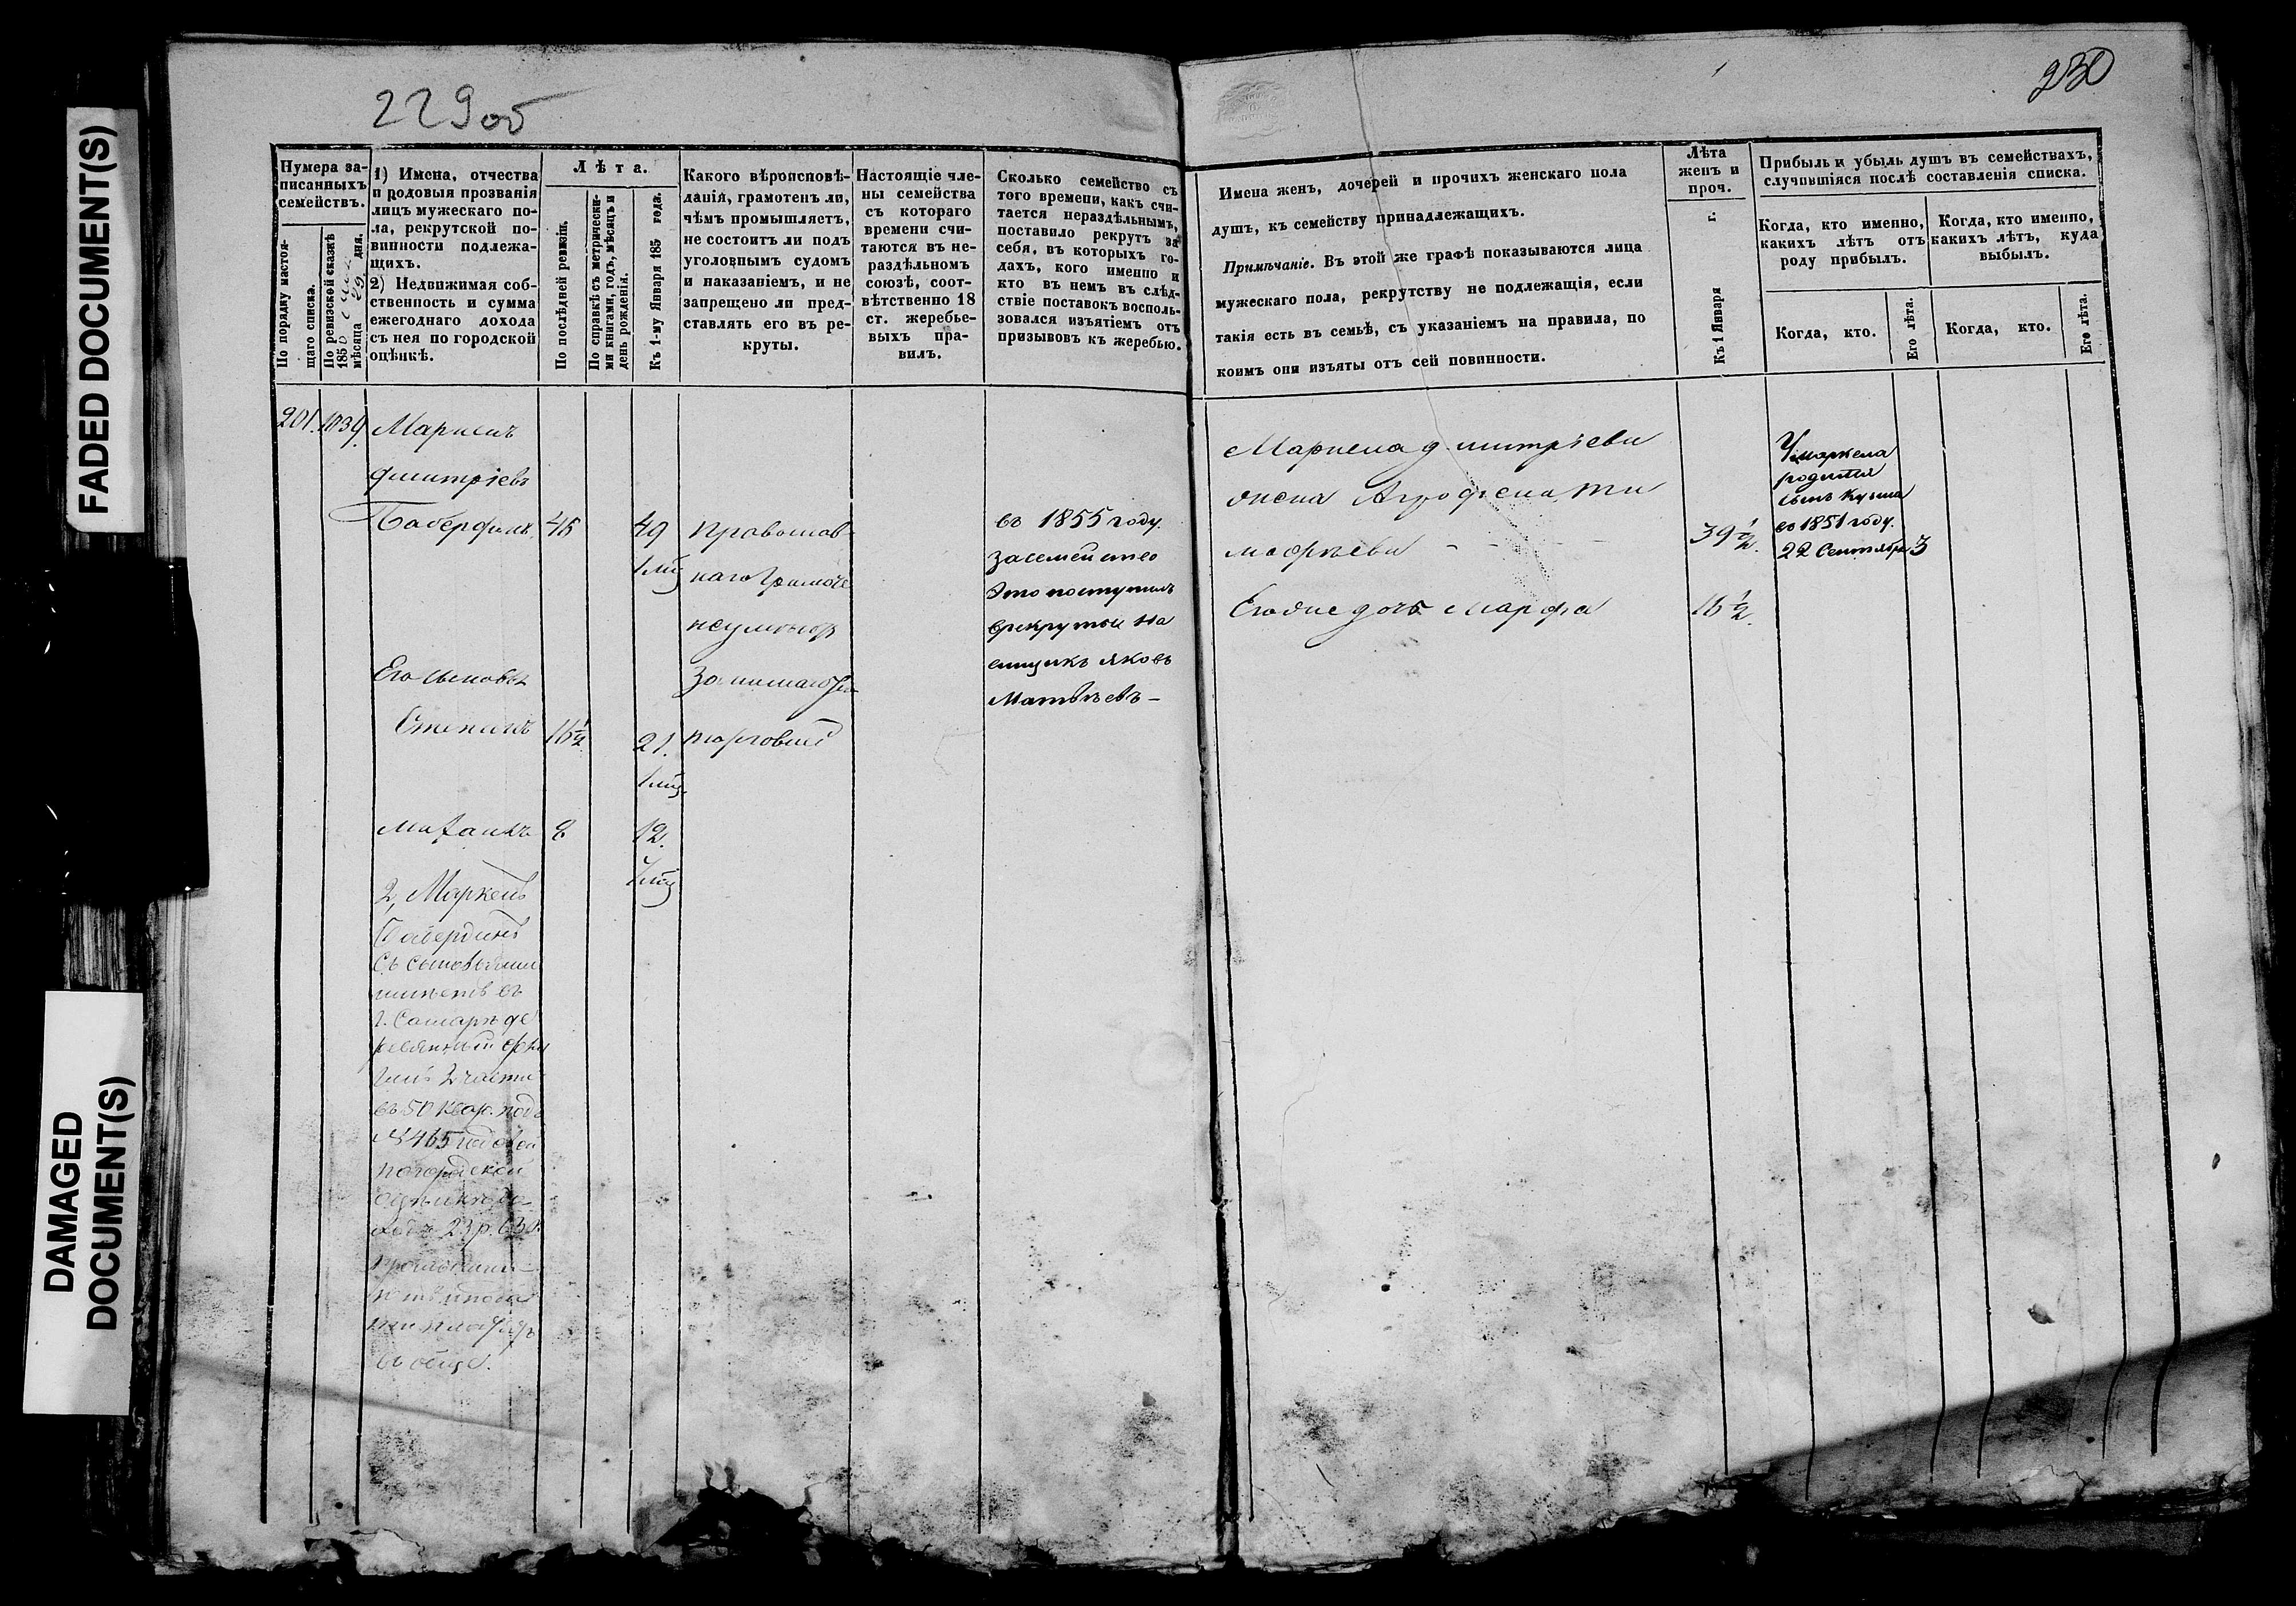 FADED DOCUMENT(S)
DAMAGED
DOCUMENT(S)
229об
Нумера за-
писанныхъ
семействъ.
По порядку настоя-
щаго списка.
По ревизской сказкѣ
1850
мѣсяца 29. дня.
1) Имена, отчества
и родовыя прозванія
лицъ мужескаго по-
ла, рекрутской по-
винности подлежа-
щихъ.
2) Недвижимая соб-
ственность и сумма
ежегоднаго дохода
съ нея по городской
оцѣнкѣ.
Лѣта.
По послѣдней ревизіи.
По справкѣ съ метрически-
ми книгами, годъ, мѣсяцъ и
день рожденія.
Къ 1-му Января 185 года.
Какого вѣроисповѣ-
данія, грамотенъ ли,
чѣмъ промышляетъ,
не состоитъ ли подъ
уголовнымъ судомъ
и наказаніемъ, и не
запрещено ли пред-
ставлять его въ ре-
круты.
Настоящіе чле-
ны семейства
съ котораго
времени счи-
таются въ не-
раздѣльномъ
союзѣ, соот-
вѣтственно 18
ст. жеребье-
выхъ пра-
вилъ.
Сколько семейство съ
того времени, какъ счи-
тается нераздѣльнымъ,
поставило рекрутъ за
себя, въ которыхъ го-
дахъ, кого именно и
кто въ немъ въ слѣд-
ствіе поставокъ восполь-
зовался изъятіемъ отъ
призывовъ къ жеребью.
201. 1039. Маркелъ
Дмитріевъ
45 49
1 мц
Православ-
наго Грамоте
неумѣютъ
Занимаются
торговлей
въ 1855 году.
засемейство
Это поступилъ
врекруты на
емщикъ Яковъ
Матвѣевъ-
Его сыновья
Степанъ 16½ 21.
1 мц.
8 12.
1 мц
2, Маркелъ
Съ сыновьями
имѣетъ въ
г. Самарѣ де
ревянный
2 части
въ 50 квар. подъ
№ 465
городской
23 р.
230
Имена женъ, дочерей и прочихъ женскаго пола
душъ, къ семейству принадлежащихъ.
Примѣчаніе. Въ этой же графѣ показываются лица
мужескаго пола, рекрутству не подлежащія, если
такія есть въ семьѣ, съ указаніемъ на правила, по
коимъ они изъяты отъ сей повинности.
Лѣта
женъ и
проч.
Къ 1 Января г.
Прибыль и убыль душъ въ семействахъ,
случившіяся послѣ составленія списка.
Когда, кто именно,
какихъ лѣтъ отъ
роду прибылъ.
Когда, кто именно,
какихъ лѣтъ, куда
выбылъ.
Когда, кто.
Его лѣта.
Когда, кто.
Его лѣта.
Маркела Дмитріева
жена Агрофена Ти
мофѣева - - - 39½.
Егоже дочь Марфа 16½.
У маркела
родился
сынъ Кузма
въ 1851 году.
22 Сентября 3